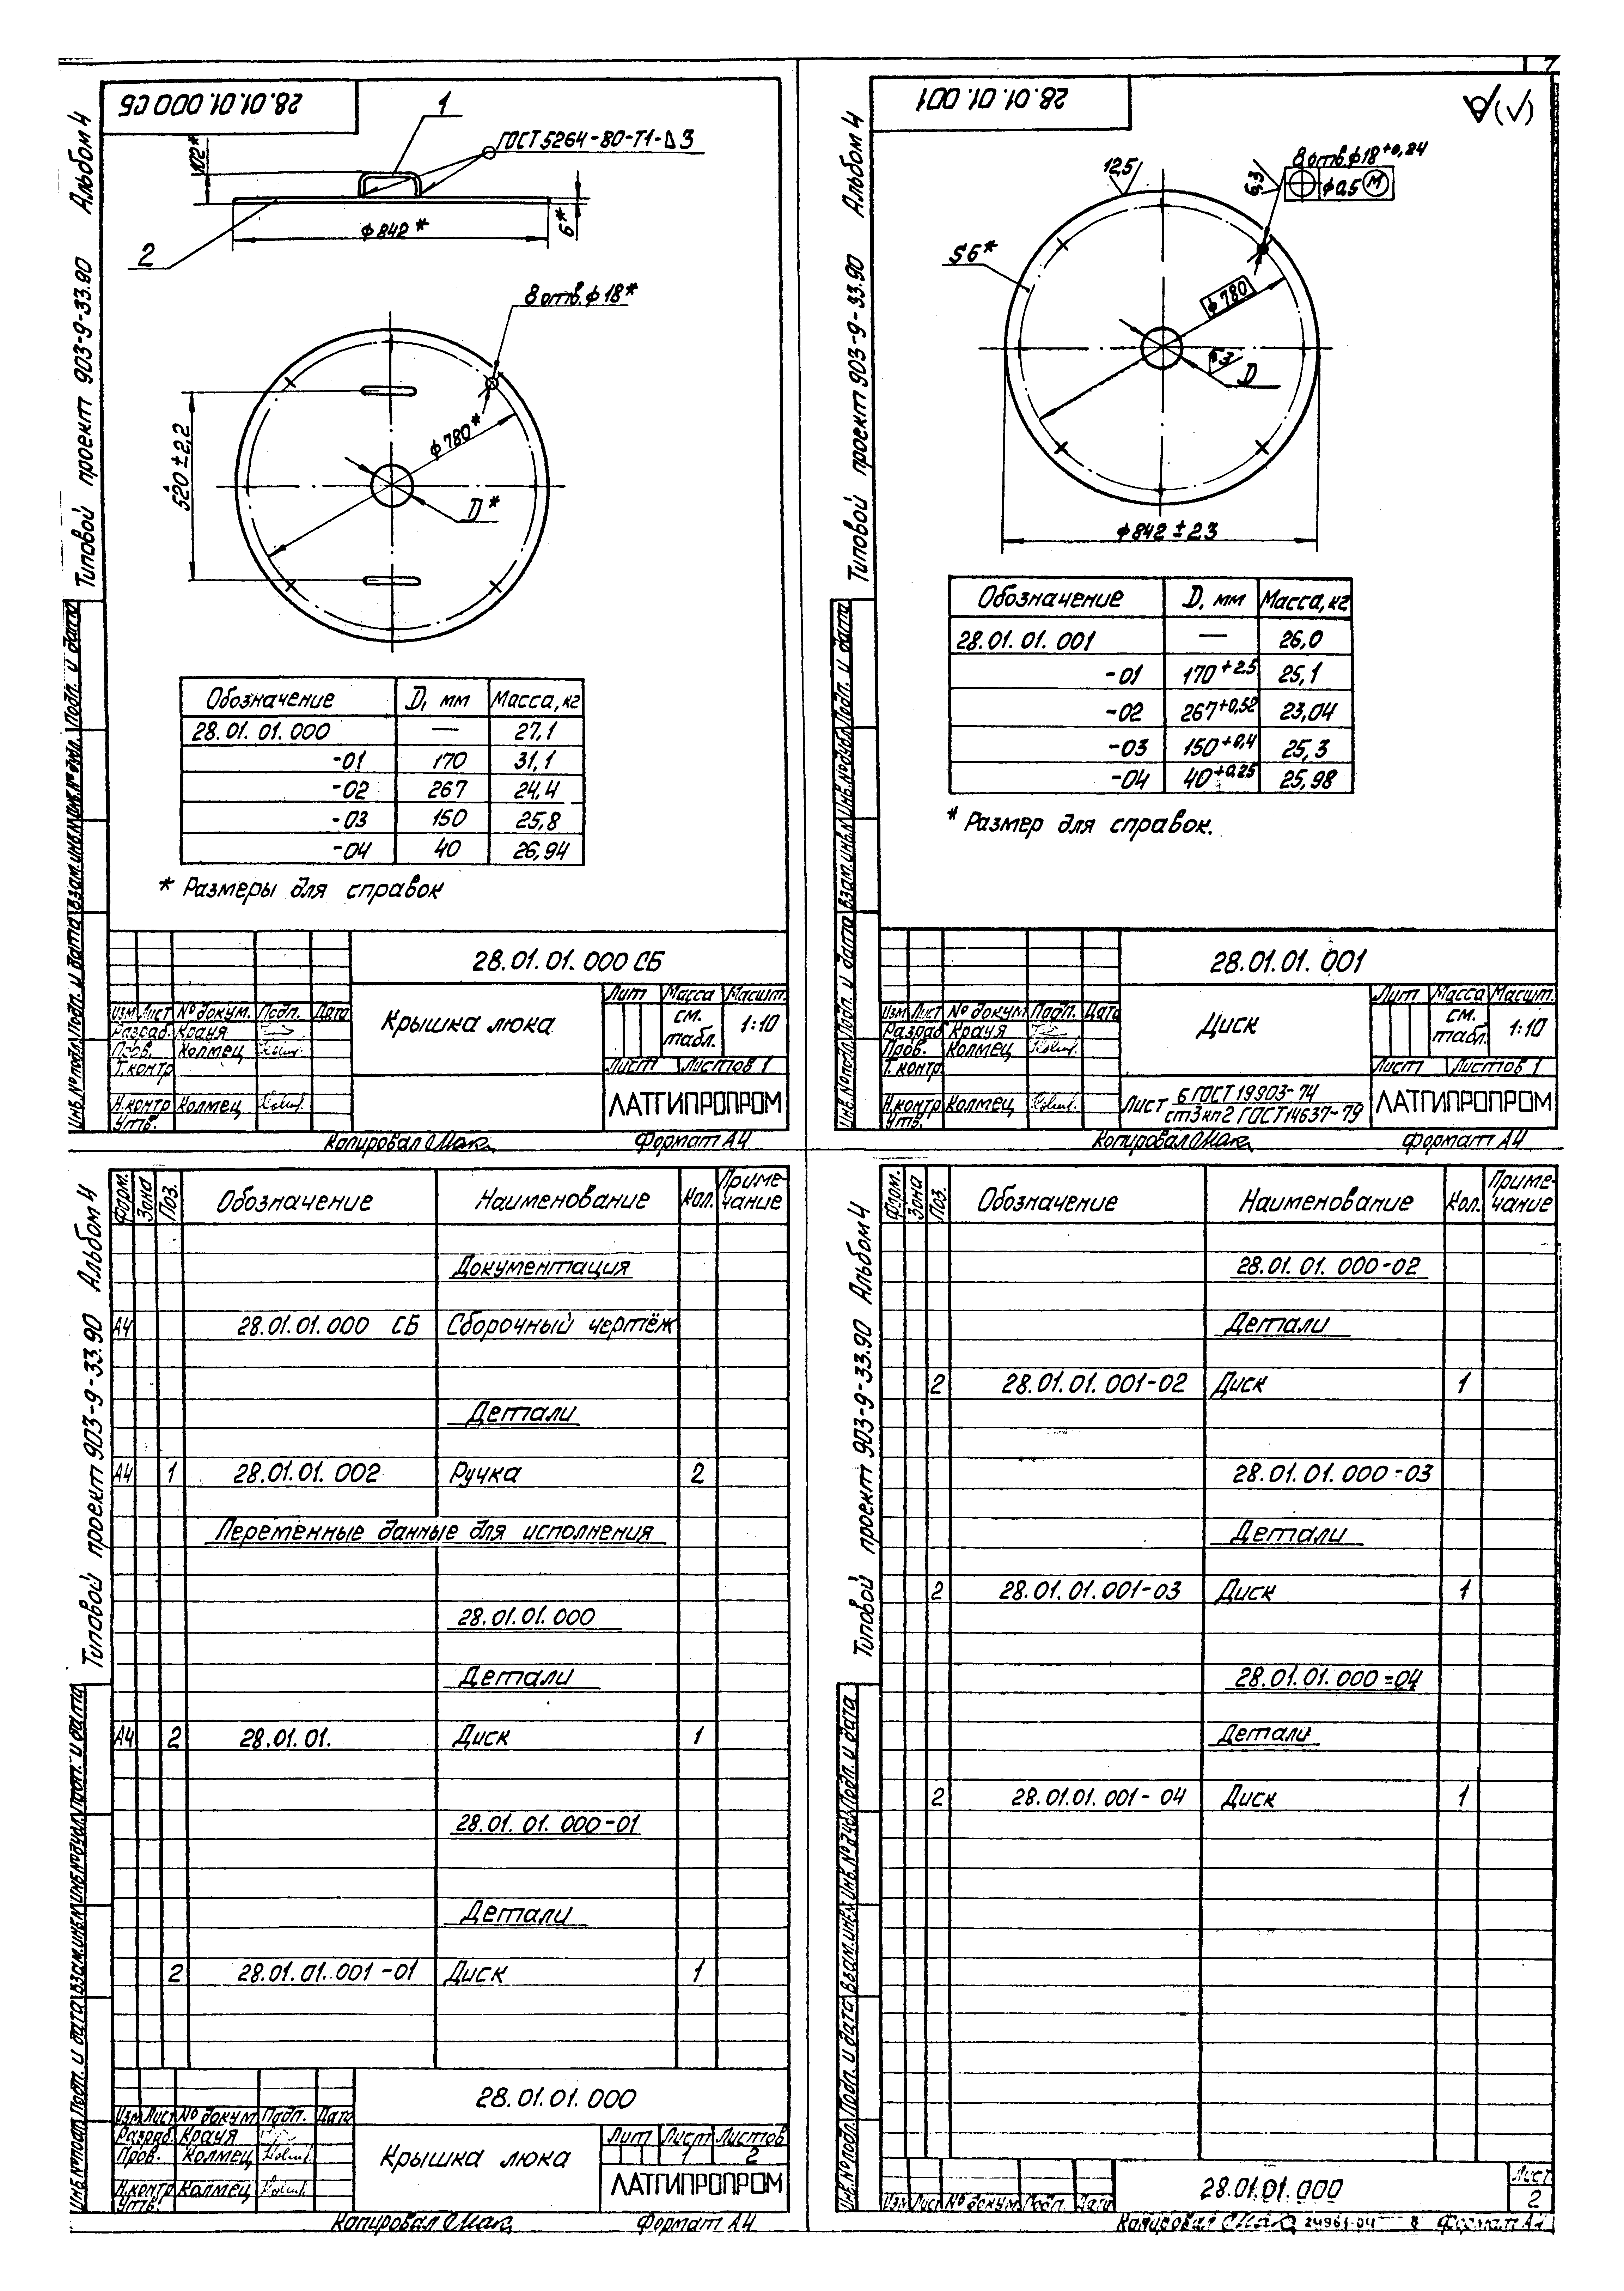 7
28.01.01.000 СБ
1
ГОСТ 5264-80-Т1-△3
102*
6*
ϕ842*
2
8 отв. ϕ18*
520±2,2
ϕ780*
D*
Обозначение D, мм Масса, кг
28.01.01.000 — 27,1
-01 170 31,1
-02 267 24,4
-03 150 25,8
-04 40 26,94
* Размеры для справок
Типовой проект 903-9-33.90 Альбом 4
Инв.№подл. Подп. и дата Взам.инв.№ Инв.№дубл. Подп. и дата
28.01.01.000 СБ
Изм Лист № докум. Подп. Дата
Разраб. Крауя
Пров. Колмец
Т.контр
Н.контр Колмец
Утв.
Крышка люка
Лит Масса Масшт.
см. табл. 1:10
Лист Листов 1
ЛАТГИПРОПРОМ
Копировал Формат А4
28.01.01.001
(√)
12,5
6,3
8 отв. ϕ18+0,24
ϕ0,5 М
S6*
ϕ780
6,3
D
ϕ842±2,3
Обозначение D, мм Масса, кг
28.01.01.001 — 26,0
-01 170+2,5 25,1
-02 267+0,52 23,04
-03 150+0,4 25,3
-04 40+0,25 25,98
* Размер для справок.
Типовой проект 903-9-33.90 Альбом 4
Инв.№подл. Подп. и дата Взам.инв.№ Инв.№дубл. Подп. и дата
28.01.01.001
Изм Лист № докум. Подп. Дата
Разраб Крауя
Пров. Колмец
Т.контр.
Н.контр Колмец
Утв.
Диск
Лит Масса Масшт.
см. табл. 1:10
Лист Листов 1
Лист 6 ГОСТ 19903-74
ст3кп2 ГОСТ 14637-79
ЛАТГИПРОПРОМ
Копировал Формат А4
Типовой проект 903-9-33.90 Альбом 4
Форм. Зона Поз. Обозначение Наименование Кол. Приме-
чание
Документация
А4 28.01.01.000 СБ Сборочный чертёж
Детали
А4 1 28.01.01.002 Ручка 2
Переменные данные для исполнения
28.01.01.000
Детали
А4 2 28.01.01. Диск 1
28.01.01.000-01
Детали
2 28.01.01.001-01 Диск 1
Инв.№подл. Подп. и дата Взам.инв.№ Инв.№дубл. Подп. и дата
28.01.01.000
Изм Лист № докум. Подп. Дата
Разраб. Крауя
Пров. Колмец
Н.контр Колмец
Утв.
Крышка люка
Лит Лист Листов
1 2
ЛАТГИПРОПРОМ
Копировал Формат А4
Типовой проект 903-9-33.90 Альбом 4
Форм. Зона Поз. Обозначение Наименование Кол. Приме-
чание
28.01.01.000-02
Детали
2 28.01.01.001-02 Диск 1
28.01.01.000-03
Детали
2 28.01.01.001-03 Диск 1
28.01.01.000-04
Детали
2 28.01.01.001-04 Диск 1
Инв.№подл. Подп. и дата Взам.инв.№ Инв.№дубл. Подп. и дата
28.01.01.000
Изм Лист № докум. Подп. Дата
Лист
2
Копировал 24961-04 8 Формат А4